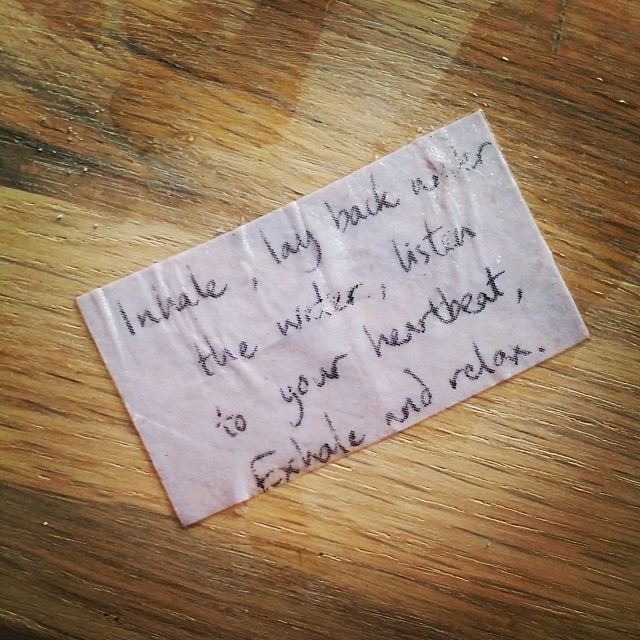 Inhale, lay back under
the water, listen
to your heartbeat,
Exhale and relax.